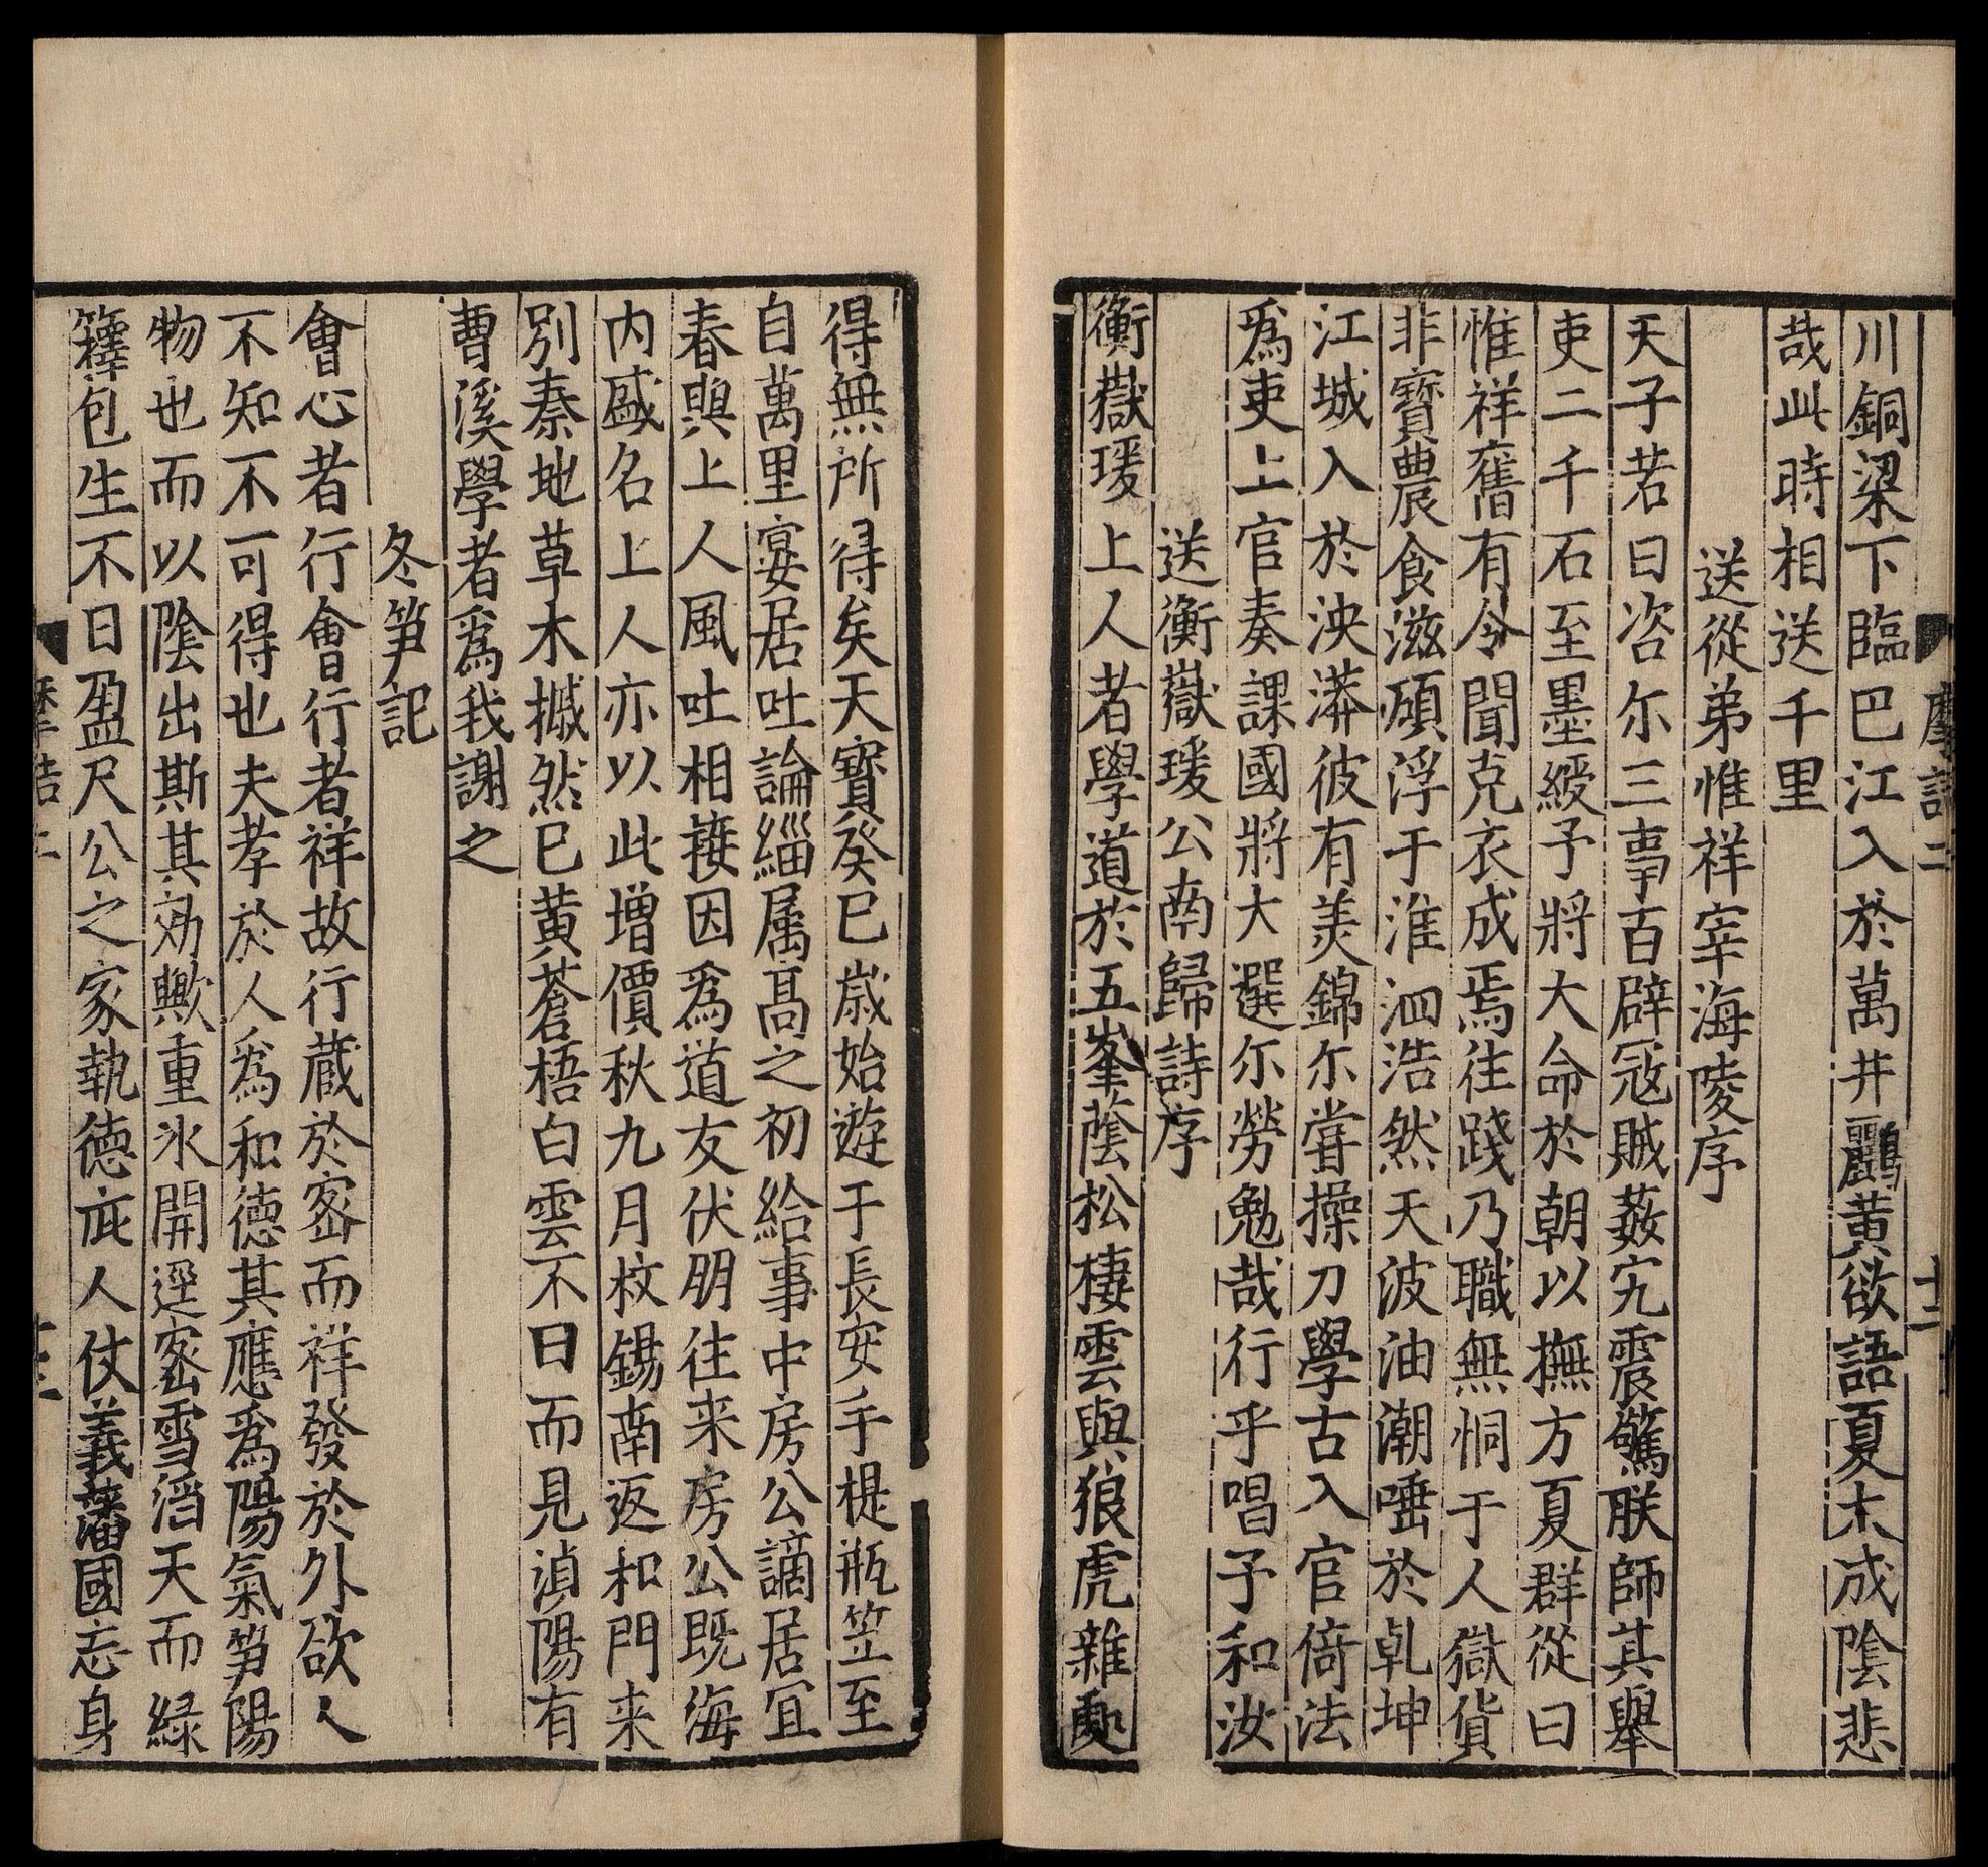 川銅梁下臨巴江入於萬井鸝黄欲語夏木成陰悲
哉此時相送千里
送從弟惟祥宰海陵序
天子若曰咨尔三事百辟冦賊姦宄震驚朕師其舉
吏二千石至墨綬予將大命於朝以撫方夏群從曰
惟祥舊有令聞克衣成焉往踐乃職無恫于人獄貨
非寳農食滋碩浮于淮泗浩然天波油潮唾於乹坤
江城入於泱漭彼有美錦尔甞操刀學古入官倚法
爲吏上官奏課國將大選尔勞勉哉行乎唱予和汝
送衡嶽瑗公南歸詩序
衡嶽瑗上人者學道於五峯蔭松棲雲與狼虎雜處
得無所得矣天寳癸巳歲始遊于長安手提瓶笠至
自萬里宴居吐論緇属髙之初給事中房公謫居宜
春與上人風吐相接因爲道友伏朋往来房公既海
内盛名上人亦以此增價秋九月杖錫南返扣門来
別秦地草木摵然已黄蒼梧白雲不日而見湞陽有
曹溪學者爲我謝之
冬笋記
會心者行會行者祥故行蔵於宻而祥發於外欲人
不知不可得也夫孝於人爲和徳其應爲陽氣笋陽
物也而以隂出斯其効歟重氷開逕宻雪滔天而緑
籜包生不日盈尺公之家執徳庇人仗義藩國忘身
摩詰二
十二